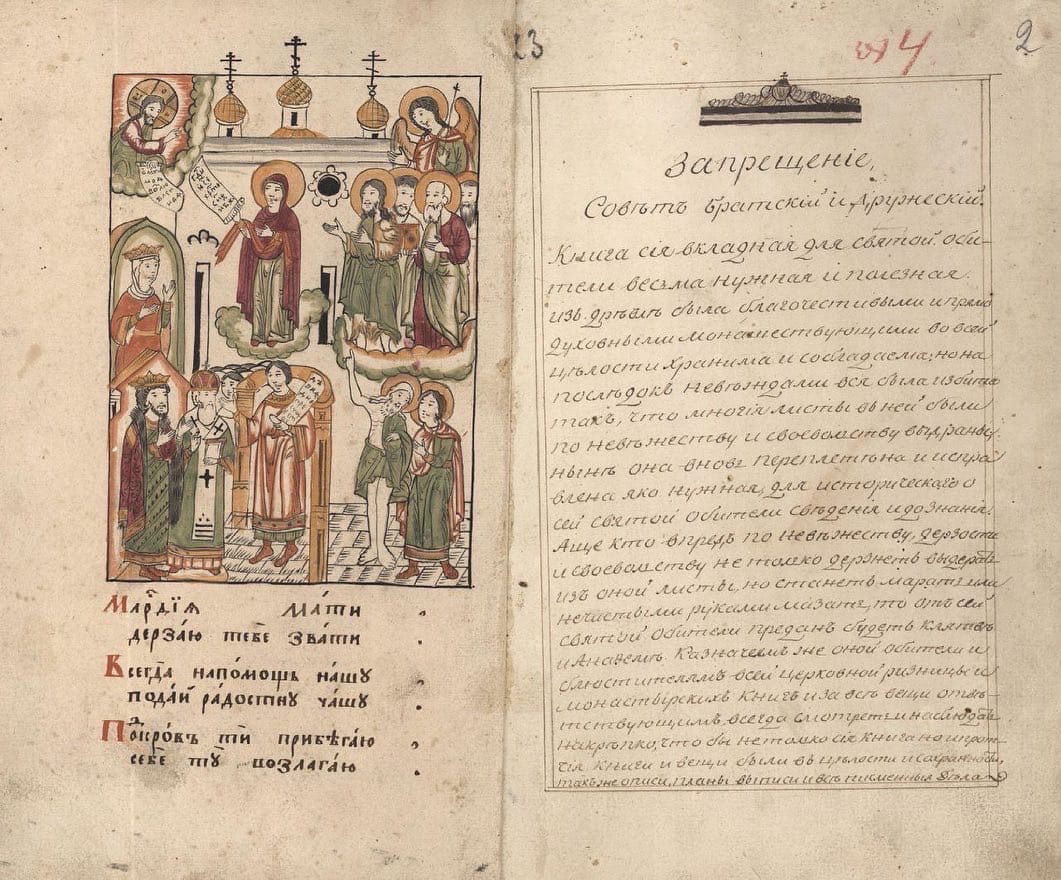 23
4
2
Марі́я мати
дерзаю тебе звати
Всегда напомощь нашу
подай радостну чашу
Покровъ тй прибѣгаю
себе тȣ возлагаю
Запрещеніе,
Совѣтъ братскій и дружескій.
Книга сія вкладная для святой оби-
тели весма нужная и полезная.
изъ древлѣ была благочестивыми и прямо
духовными монашествующими во всей
цѣлости хранима и соблюдаема; но на
послѣдокъ невѣждами вся была избита
такъ, что многія листы въ ней были
по невѣжеству и своеволству выдраны,
нынѣ она вновь переплетѣна и испра
влена яко нужная, для историческаго о
сей святой обители свѣденія и дознанія.
Аще кто впредъ по невѣжеству, дерзости
и своеволству не толко дерзнетъ выдрать
изъ оной листы, но станетъ марать или
нечистыми руками мазать, то отъ сей
святой обители преданъ будетъ клятвѣ
и Анаѳемѣ. Казначеямъ же оной обители и
блюстителямъ всей церковной ризницы и
монастырскихъ книгъ и за всѣ вещи отвѣ-
тствующимъ, всегда смотреть и наблюдать
накрѣпко, что бы не толко сія книга но и протт
чія книги и вещи были въ цѣлости и сохранности,
такъже описи, планы выписи и всѣ писменныя дѣла